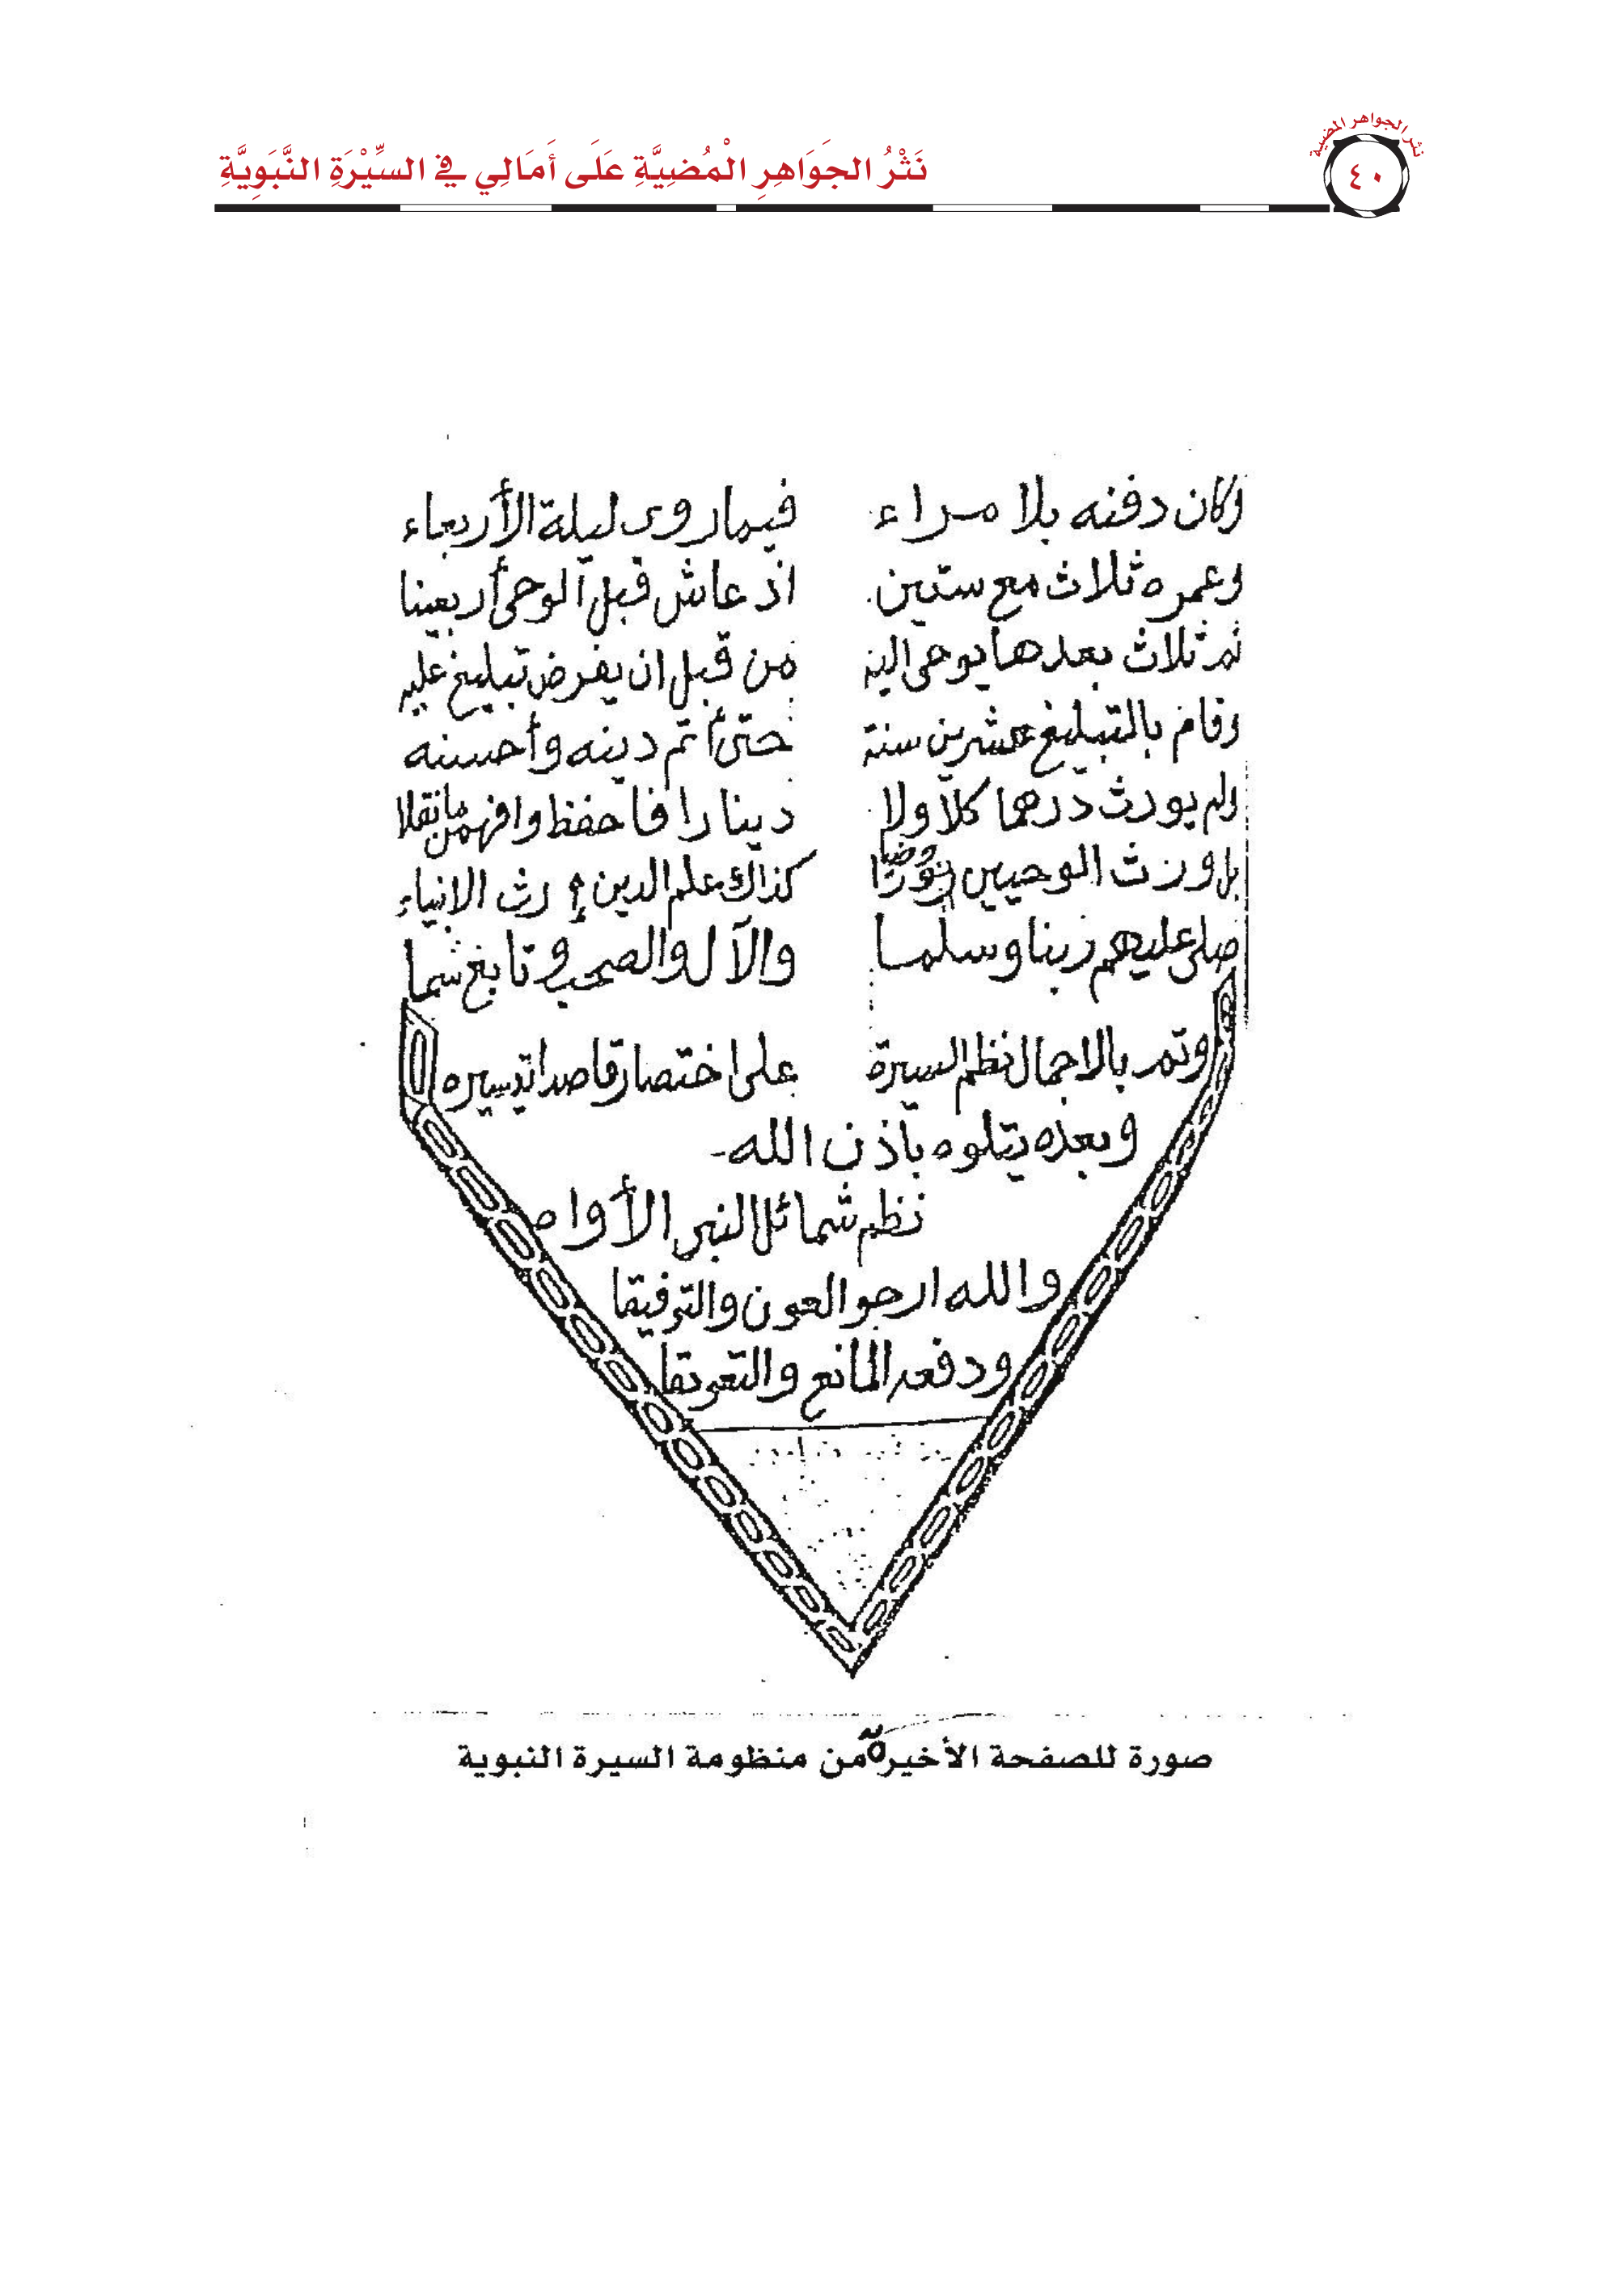 نَثْرُ الجَوَاهِرِ الْمُضِيَّةِ عَلَى أَمَالِي فِي السِّيْرَةِ النَّبَوِيَّةِ
نثر الجواهر المضية
٤٠
وكان دفنه بلا مراء فيما روى ليلة الأربعاء
وعمره ثلاث مع ستين اذ عاش قبل الوحى أربعينا
ثم ثلاث بعدها يوحى اليه من قبل ان يفرض تبليغ عليه
وقام بالتبليغ عشرين سنة حتى أتم دينه وأحسنه
ولم يورث درهما كلا ولا دينارا فاحفظ وافهمن مانقلا
بل ورث الوحيين كذاك علم الدين إرث الانبياء
صلى عليهم ربنا وسلما والآل والصحب وتابع سما
وتم بالاجمال نظم السيرة على اختصار قاصدا تيسيره
وبعده يتلوه باذن الله
نظم شمائل النبي الأواه
والله ارجو العون والتوفيقا
ودفعه المانع والتعويقا
صورة للصفحة الأخيرة من منظومة السيرة النبوية